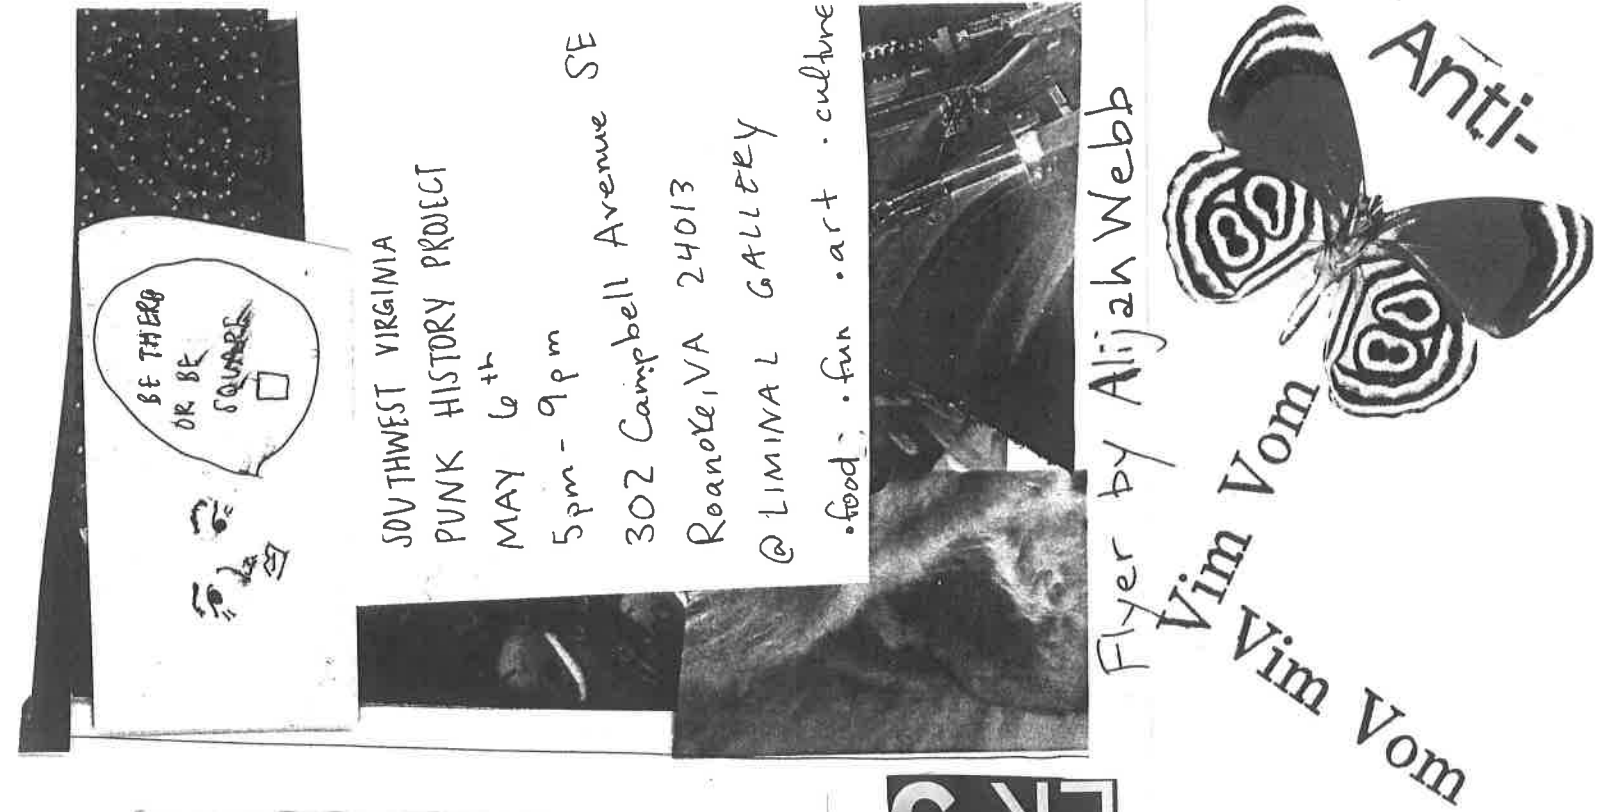 BE THERE
OR BE
SQUARE
SOUTHWEST VIRGINIA
PUNK HISTORY PROJECT
MAY 6th
5pm - 9pm
302 Campbell Avenue SE
Roanoke, VA 24013
@ LIMINAL GALLERY
.food. .fun .art .culture
Flyer by Alijah Webb
Anti-
Vim Vom
Vim Vom